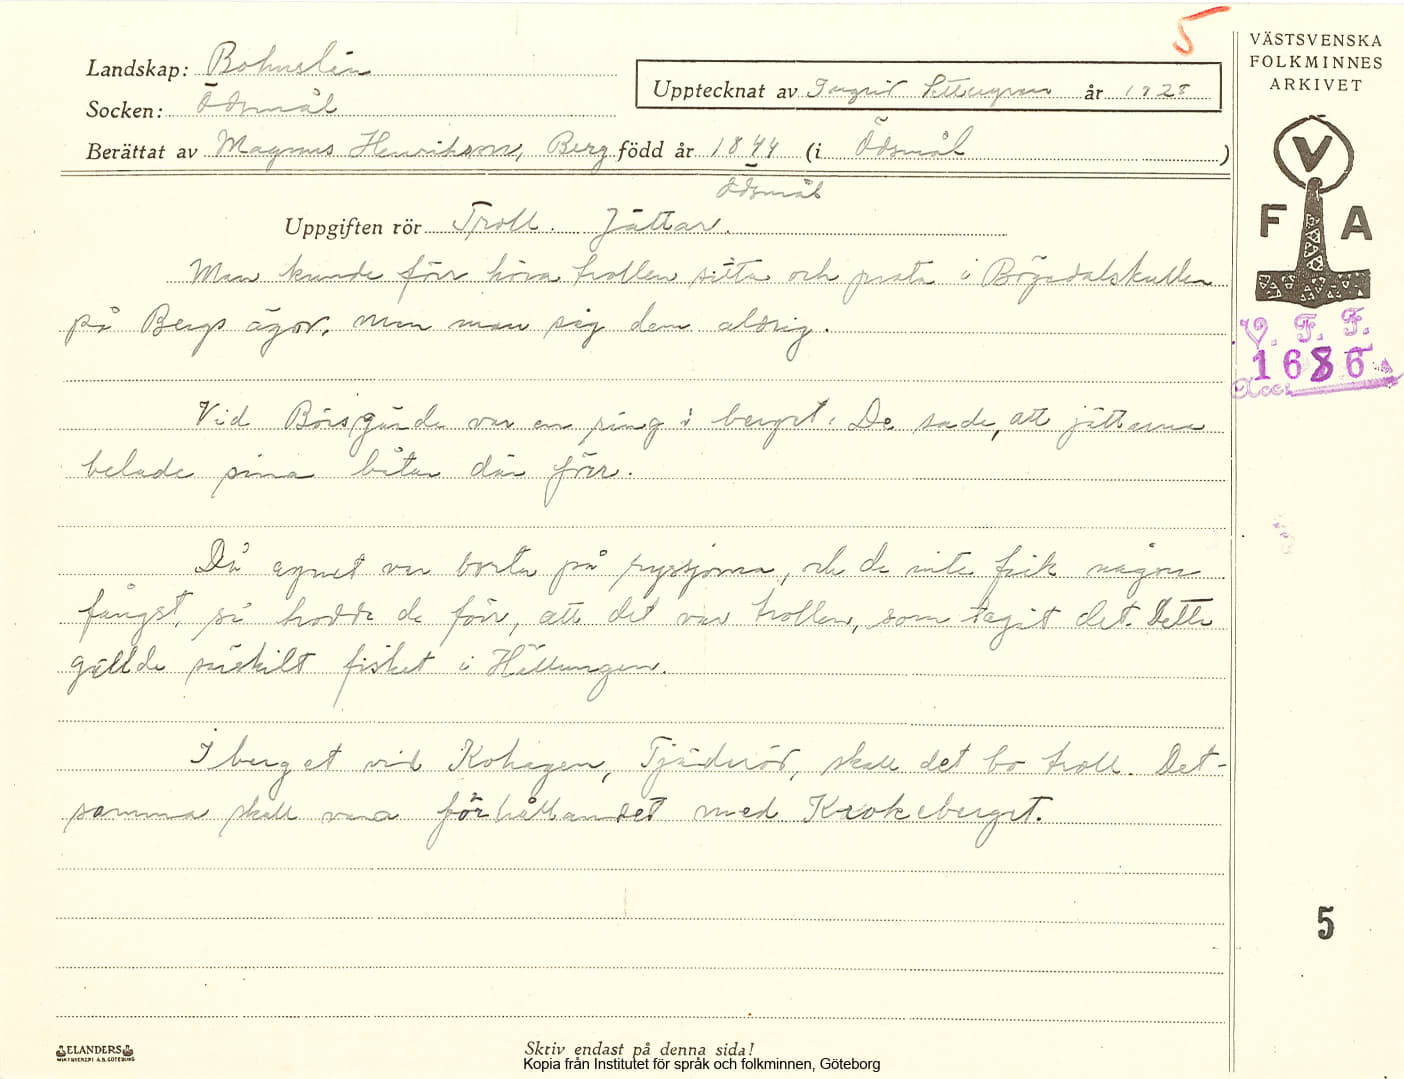 5
VÄSTSVENSKA
FOLKMINNES
ARKIVET
Landskap: Bohuslän
Upptecknat av Ingrid år 1928
Socken: Ödsmål
Berättat av Magnus Henrikson, Berg född år 1844 (i Ödsmål )
Ödsmål
Uppgiften rör Troll. Jättar.
V
F A
Man kunde förr höra trollen sitta och prata i
på Bergs ägor, men man såg dem aldrig.
V. F. F.
1686
Acc.
Vid Börsgärde var en ring i berget. De sade, att jättarna
belade sina båtar där förr.
Då agnet var borta på ryssjorna, och de inte fick någon
fångst, så trodde de förr, att det var trollen, som tagit det. Detta
gällde särskilt fisket i Hällungen.
I berget vid Kohagen, Tjäderöd, skall det bo troll. Det-
samma skall vara förhållandet med Krokeberget.
5
ELANDERS
Skriv endast på denna sida!
Kopia från Institutet för språk och folkminnen, Göteborg